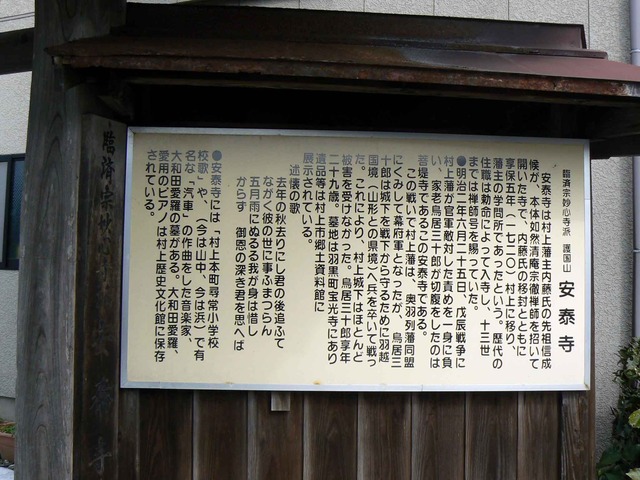 臨済宗妙心寺派 護国山 安泰寺
安泰寺は村上藩主内藤氏の先祖信成
候が、本体如然清庵宗徹禅師を招いて
開いた寺で、内藤氏の移封とともに
享保五年(一七二〇)村上に移り、
藩主の学問所であったという。歴代の
住職は勅命によって入寺し、十三世
までは禅師号を賜っていた。
●明治二年六月二十五日、戊辰戦争に
村上藩が官軍に敵対した責めを一身に負
い、家老鳥居三十郎が切腹をしたのは
菩堤寺であるこの安泰寺である。
この戦いで村上藩は、奥羽列藩同盟
にくみして幕府軍となったが、鳥居三
十郎は城下を戦下から守るために羽越
国境(山形との県境)へ兵を卒いて戦っ
た。これにより、村上城下はほとんど
被害を受けなかった。鳥居三十郎享年
二十九歳。墓地は羽黒町宝光寺にあり
遺品等は村上市郷土資料館に
展示されている。
述懐の歌
去年の秋去りにし君の後追ふて
ながく彼の世に事ふまつらん
五月雨にぬるる我が身は惜し
からず 御恩の深き君を思へば
●安泰寺には「村上本町尋常小学校
校歌」や、(今は山中、今は浜)で有
名な「汽車」の作曲をした音楽家、
大和田愛羅の墓がある。大和田愛羅、
愛用のピアノは村上歴史文化館に保存
されている。
臨済宗妙